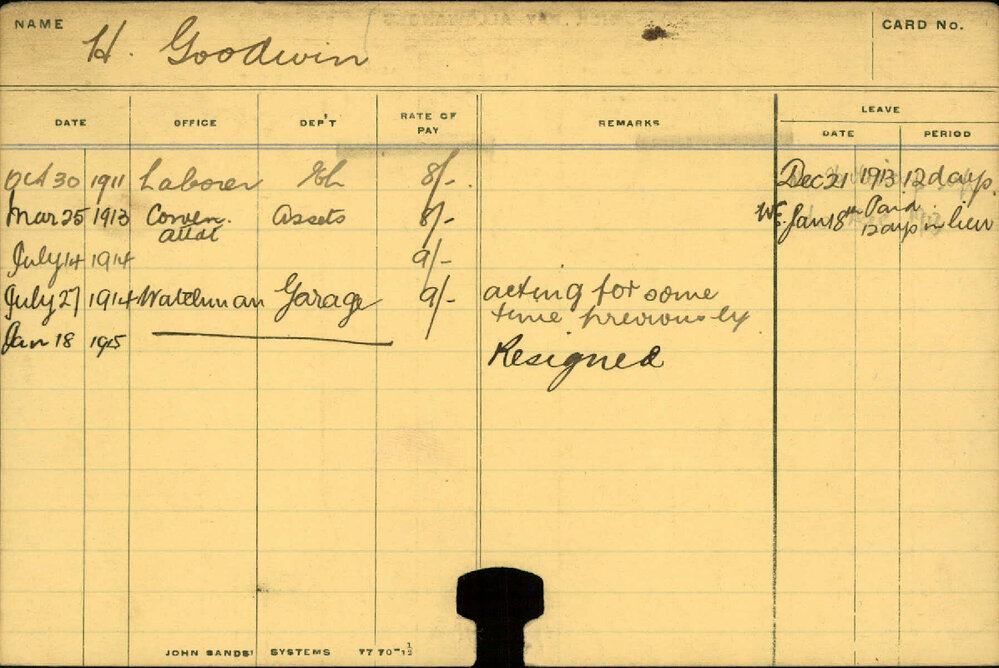 NAME H. Goodwin CARD No.
LEAVE
DATE OFFICE DEP'T RATE OF PAY REMARKS DATE PERIOD
Oct 30 1911 Laborer 8/- Dec 21 1913 12 days.
Mar 25 1913 Conven. Assets 8/- W.E. Jan 18th Paid
attdt 12 days in lieu
July 14 1914 9/-
July 27 1914 Watchman Garage 9/- acting for some
time previously
Jan 18 1915 Resigned
JOHN SANDS' SYSTEMS 7770-1/12